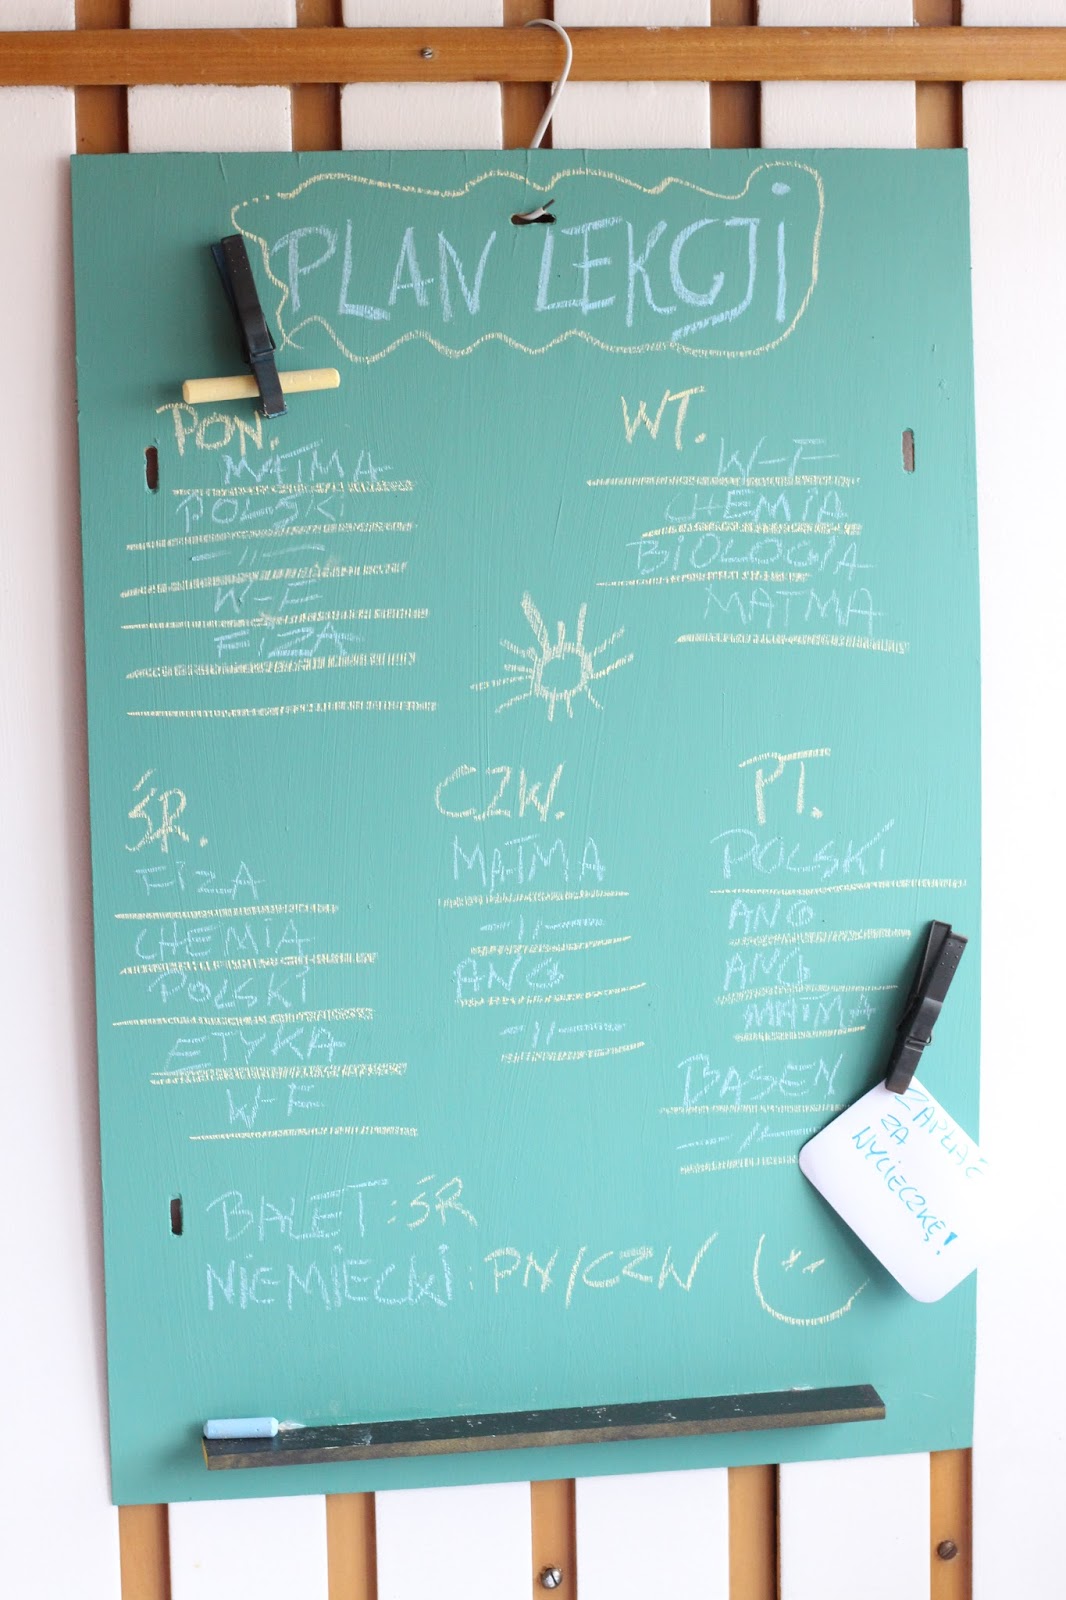 PLAN LEKCJI
PON.
MATMA
POLSKI
-〃-
W-F
FIZA
WT.
W-F
CHEMIA
BIOLOGIA
MATMA
ŚR.
FIZA
CHEMIA
POLSKI
ETYKA
W-F
CZW.
MATMA
-〃-
ANG
-〃-
PT.
POLSKI
ANG
ANG
MATMA
BASEN
-〃-
ZAPŁAĆ
ZA
WYCIECZKĘ!
BALET: ŚR
NIEMIECKI: PN/CZW